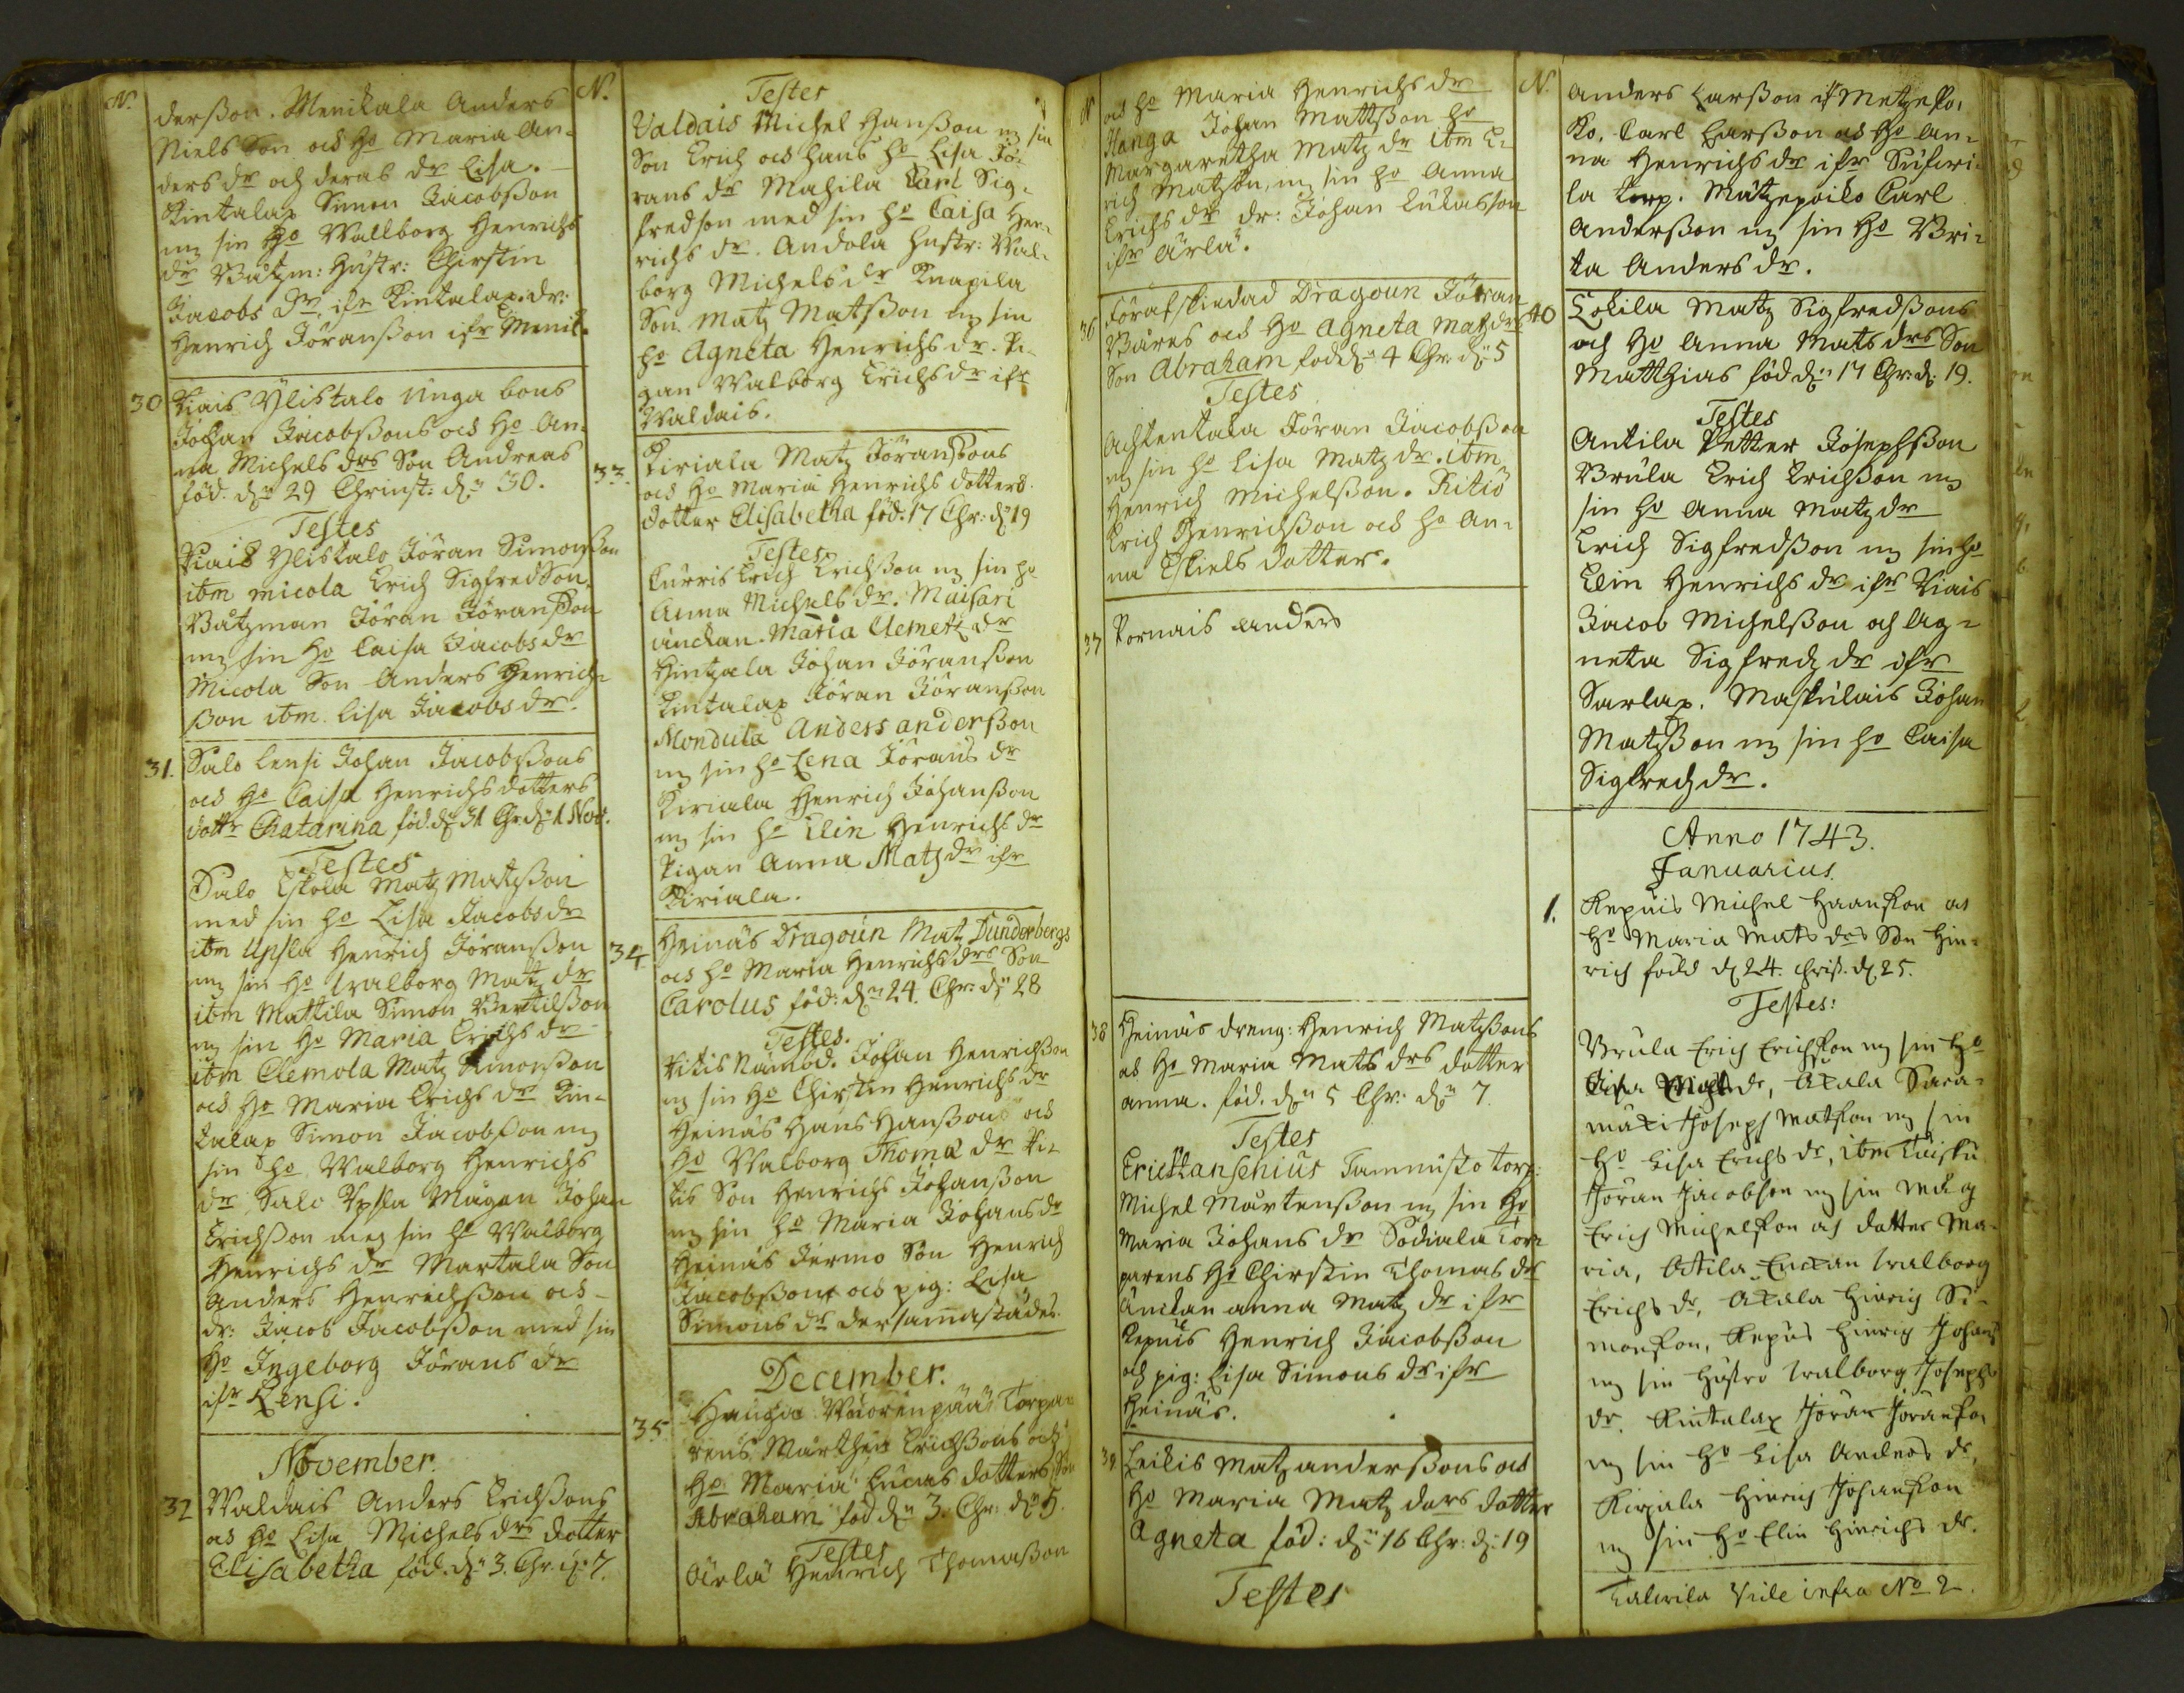 N.
derßon. Menikala Anders
Niels Son och Ho Maria An-
ders dr och deras dr Lisa.
Kintalax Simon Jacobßon
mz sin Ho Wallborg Henrichs
dr Båtzm: Hustr: Chirstin
Jacobs dr, ifr Kintalax. dr:
Henrich Jöranßon ifr Menik.
30 Kiais Ylistalo Unga bons
Johan Jacobßons och Ho An-
na Michels drs Son Andreas
föd. dn 29 Christ: dn 30.
Testes
Kiais Ylistalo Jöran Simonßon
ibm Micola Erich Sigfredson.
Båtzman Jöran Jöranßon
mz sin Ho Caisa Jacobs dr
Micola Son Anders Henrich-
ßon ibm. Lisa Jacobs dr.
31. Salo Lensi Johan Jacobßons
och Ho Caisa Henrichs dotters
dottr Chatarina föd. dn 31 Chr. dn 1 Nov.
Testes
Salo Eskola Matz Matzßon
med sin Ho Lisa Jacobs dr
ibm Upsla Henrich Jöranßon
mz sin Ho Walborg Matz dr
ibm Mattila Simon Bertilßon
mz sin Ho Maria Erichs dr
ibm Clemola Matz Simonßon
och Ho Maria Erichs dr Kin-
talax Simon Jacobßon mz
sin Ho Walborg Henrichs
dr Salo Ypsla Mågen Johan
Erichßon mez sin Ho Walborg
Henrichs dr Martala Son
Anders Henrichßon och
dr: Jacob Jacobßon med sin
Ho Ingeborg Jörans dr
ifr Lensi.
November.
32 Waldais Anders Erichßons
och Ho Lisa Michels drs dotter
Elisabetha föd. dn 3. Chr. dn 7.
N.
Testes
Valdais Michel Hanßon mz sin
Son Erich och hans Ho Lisa Jö-
rans dr Mahila Carl Sig-
fredson med sin Ho Caisa Hen-
richs dr. Andola Hustr: Wal-
borg Michels dr Knapila
Son Matz Matßon mz sin
Ho Agneta Henrichs dr. Pi-
gan Walborg Erichs dr ifr
Waldais.
33. Kiriala Matz Jöranßons
och Ho Maria Henrichs dotters
dotter Elisabetha föd. 17 Chr: dn 19
Testes
Curris Erich Erichßon mz sin Ho
Anna Michels dr. Maisari
änckan. Maria Clemetz dr
Hintzala Johan Jöranßon
Kintalax Jöran Jöranßon
Mondula Anders anderßon
mz sin Ho Lena Jörans dr
Kiriala Henrich Johanßon
mz sin Ho Elin Henrichs dr
Pigan Anna Matz dr ifr
Kiriala.
34. Heinäs Dragoun Matz Dunderbergs
och Ho Maria Henrichs drs Son
Carolus föd: dn 24. Chr: dn 28
Testes.
Pitis Nämbd. Johan Henrichßon
mz sin Ho Chirstin Henrichs dr
Heinäs Hans Hanßons och
Ho Walborg Thoma dr Pi-
tis Son Henrichs Johanßon
mz sin Ho Maria Johans dr
Heinäs Jermo Son Henrich
Jacobßons och pig: Lisa
Simons dr dersammastädes.
December.
35. Haugia Wuorenpää Torpa-
rens Mårthen Erichßons och
Ho Maria Lucas dotters Son
Abraham föd dn 3. Chr: dn 5.
Testes
Äirlä Henrich Thomaßon
N
och Ho Maria Henrichs dr
Hanga Johan Mattßon Ho
Margaretha Matz dr ibm E-
rich Matzson, mz sin Ho Anna
Erichs dr dr: Johan Lukasson
ifr Ärlä.
36 Förafskiedad Dragoun Jöran
Bäres och Ho Agneta Matz drs
Son Abraham föd dn 4 Chr. dn 5
Testes
Achtentala Jöran Jacobßon
mz sin Ho Lisa Matz dr. ibm
Henrich Michelßon. Ritiö
Erich Henrichßon och Ho An-
na Eskiels dotter.
37 Pornais Anders
38 Heinäs dreng: Henrich Matzßons
och Ho Maria Mats drs dotter
Anna. föd. dn 5 Chr: dn 7.
Testes
Erich Hansenius Tammisto torp:
Michel Mårtenßon mz sin Ho
Maria Johans dr Södiala Tor-
parens Ho Chirstin Thomas dr
Änckan Anna Matz dr ifr
Kepuis Henrich Jacobßon
och pig: Lisa Simons dr ifr
Heinäs.
39. Leikis Matz anderßons och
Ho Maria Matz dors dotter
Agneta föd: dn 16 Chr: dn 19
Testes
N.
Anders Larßon if Metzeko,
Ko. Carl Larßon och Ho An-
na Henrichs dr ifr
la torp. Mätzepoiko Carl
Anderßon mz sin Ho Bri-
ta Anders dr.
40 Lokila Matz Sigfredßons
och Ho Anna Mats drs Son
Matthias föd dn 17 Chr: d. 19.
Testes
Antila Petter Josephßon
Brula Erich Erichßon mz
sin Ho Anna Matz dr
Erich Sigfredßon mz sin Ho
Elin Henrichs dr ifr Kiais
Jacob Michelßon och Ag-
neta Sigfredz dr ifr
Sarlax. Maskulais Johan
Matzßon mz sin Ho Caisa
Sigfredz dr.
Anno 1743.
Januarius.
1. Kepuis Michel Haanßon och
Ho Maria Mats drs Son Hin-
rich född d 24. Christ. d 25.
Testes:
Brula Erich Erichßon mz sin Ho
Lisa dr, Axala Sara-
mäki Joseph Matßon mz sin
Ho Lisa Erichs dr, ibm
Jöran Jacobßon mz sin måg
Erich Michelßon och dotter Ma-
ria, Attila Enckan Walborg
Erichs dr, Axala Hinrich Si-
monßon, Kepus Hinrich Johans
mz sin Hustro Walborg Josephs
dr. Kintalax Jöran Jöranßon
mz sin Ho Lisa Anders dr,
Kirjala Hinrich Johanßon
mz sin Ho Elin Hinrichs dr.
Talwila Vide infra No 2.